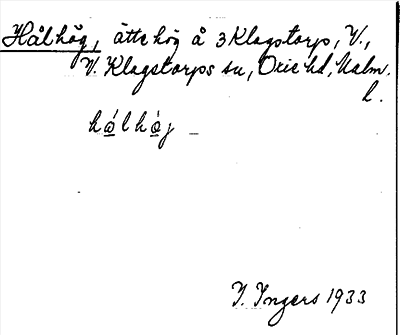 Hålhög, ättehög å 3 Klagstorp, V.,
V. Klagstorps sn, Oxie hd, Malm.
l.
hålhöj
I. Ingers 1933